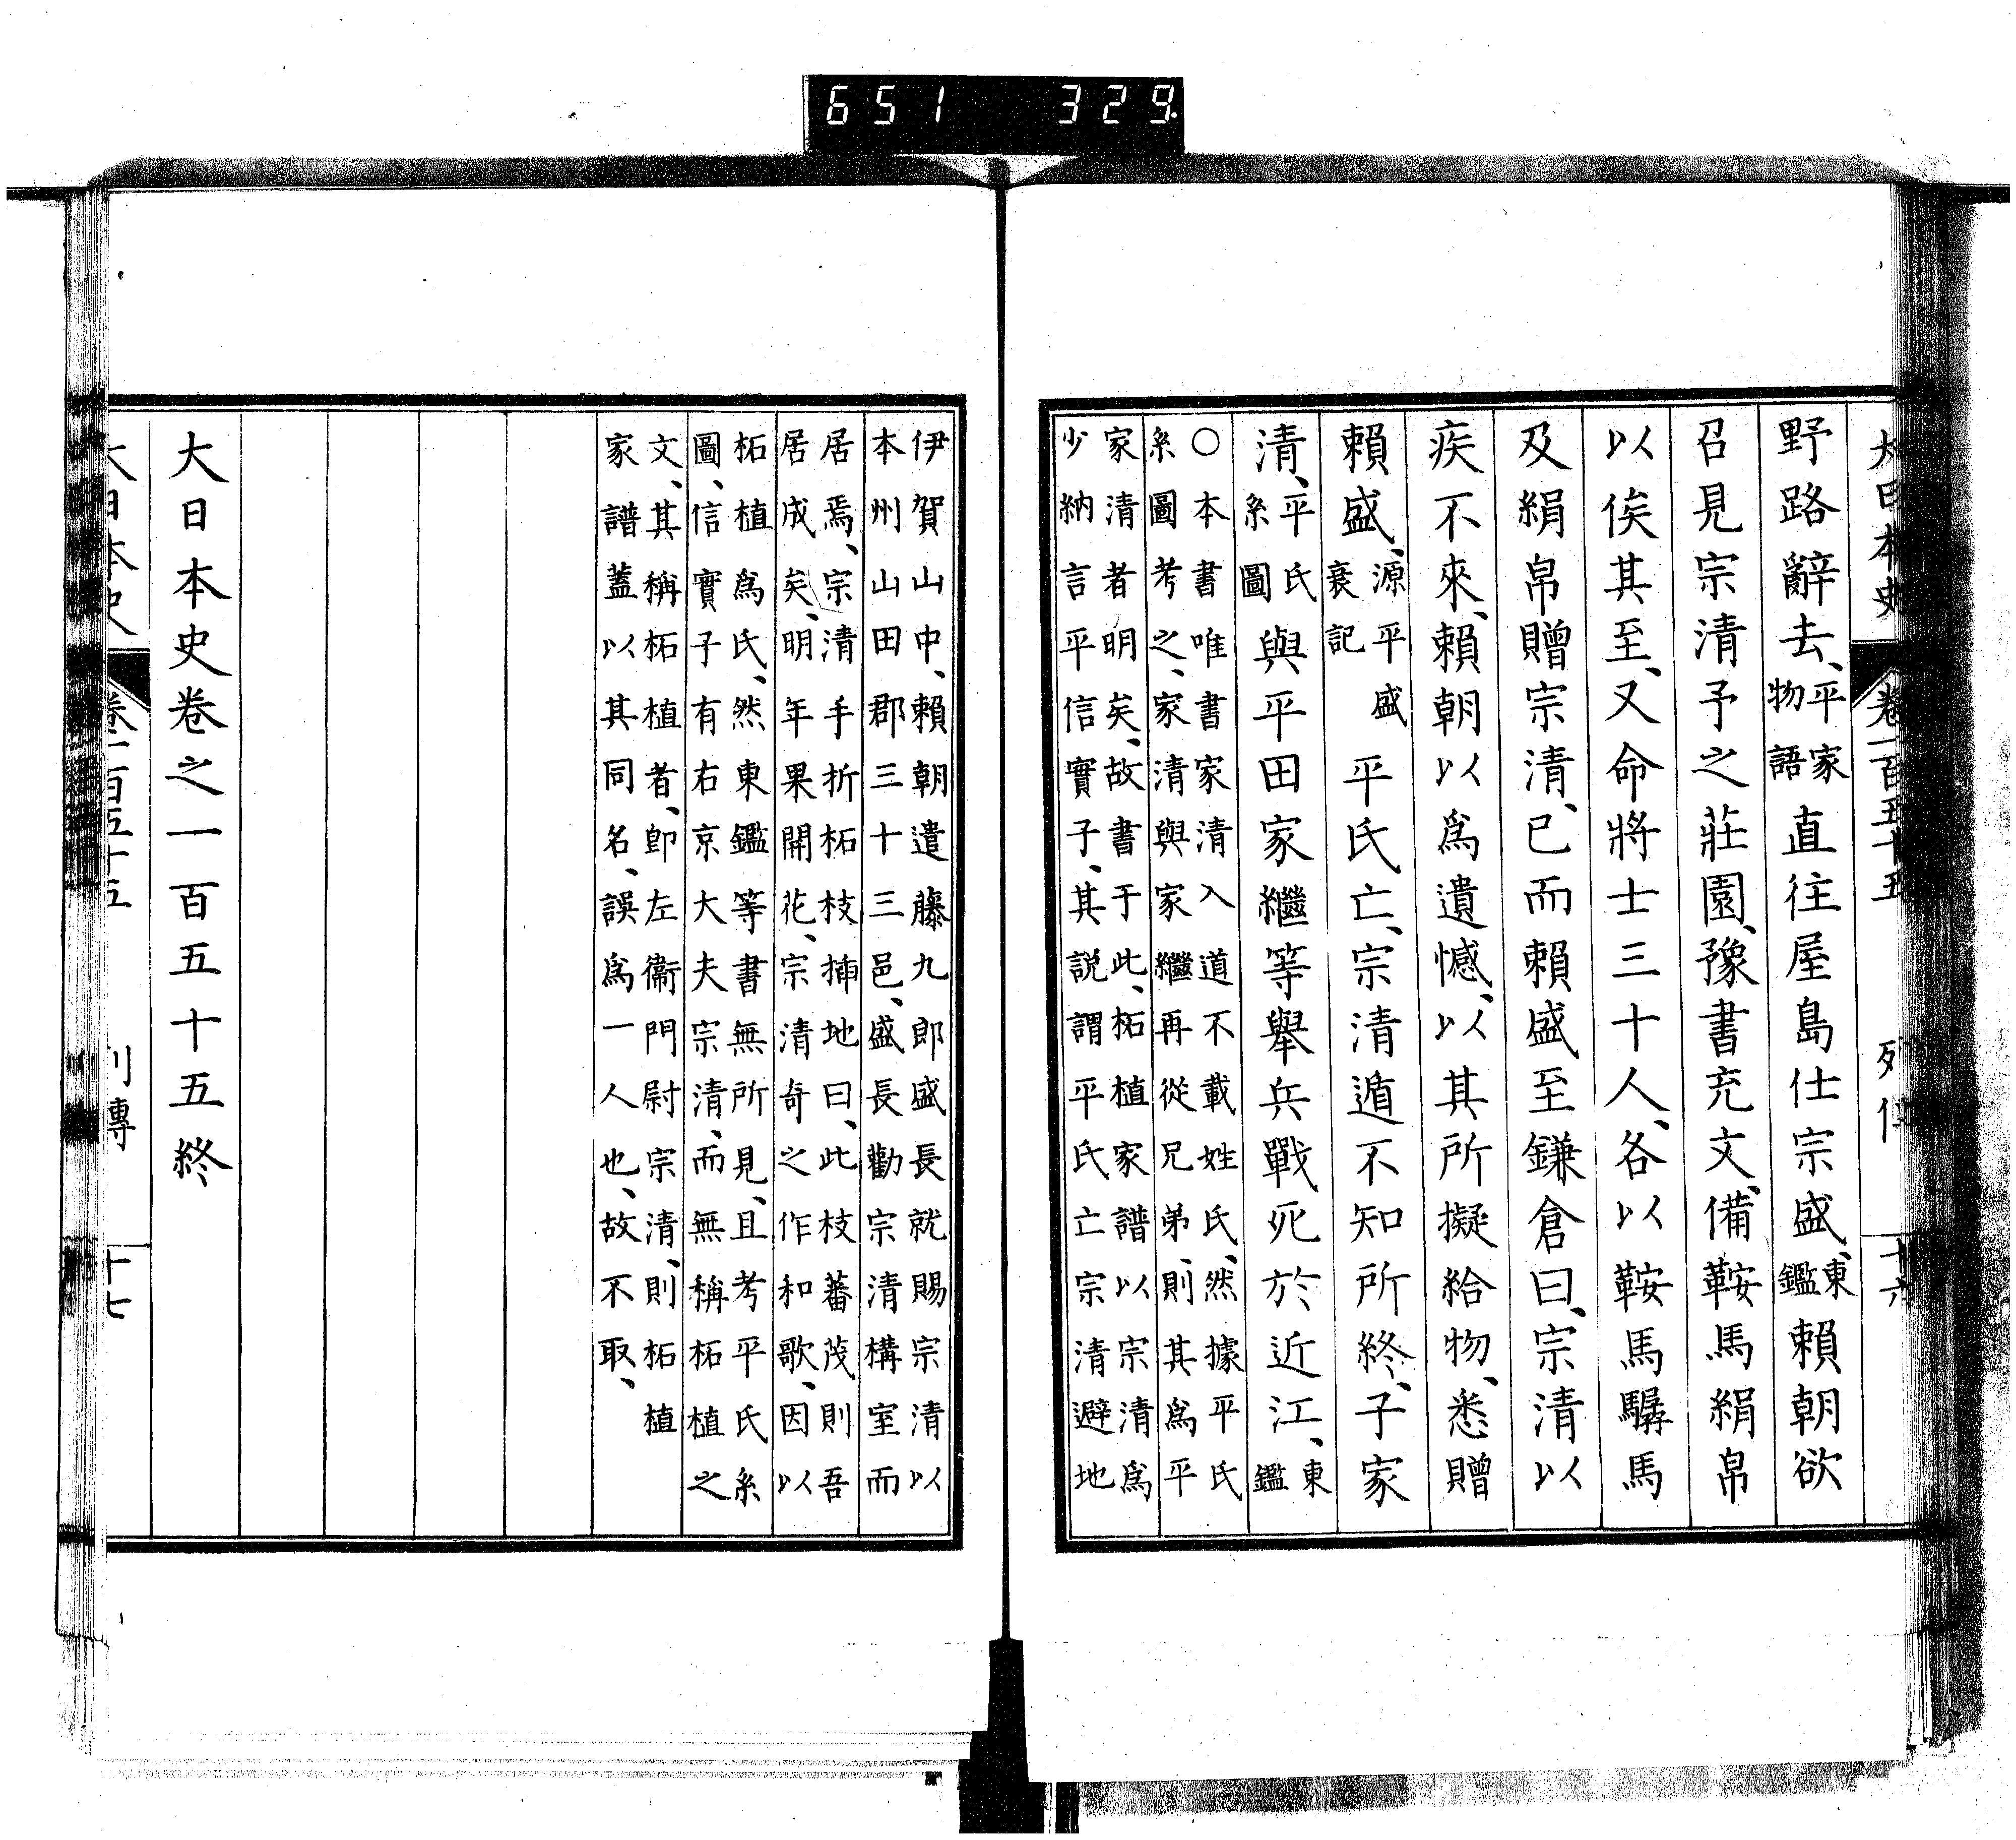 651 329
大日本史 卷一百五十五 列傳 十六
野路辭去、平家物語直往屋島仕宗盛、東鑑賴朝欲
召見宗清予之莊園、豫書充文、備鞍馬絹帛
以俟其至、又命將士三十人、各以鞍馬驏馬
及絹帛贈宗清、已而賴盛至鎌倉曰、宗清以
疾不來、賴朝以爲遺憾、以其所擬給物、悉贈
賴盛、源平盛衰記平氏亡、宗清遁不知所終、子家
清、平氏系圖與平田家繼等舉兵戰死於近江、東鑑
○本書唯書家清入道不載姓氏、然據平氏
系圖考之、家清與家繼再從兄弟、則其爲平
家清者明矣、故書于此、柘植家譜以宗清爲
少納言平信實子、其説謂平氏亡宗清避地
伊賀山中、賴朝遣藤九郎盛長就賜宗清以
本州山田郡三十三邑、盛長勸宗清構室而
居焉、宗清手折柘枝插地曰、此枝蕃茂則吾
居成矣、明年果開花、宗清奇之作和歌、因以
柘植爲氏、然東鑑等書無所見、且考平氏系
圖、信實子有右京大夫宗清、而無稱柘植之
文、其稱柘植者、卽左衞門尉宗清、則柘植
家譜蓋以其同名、誤爲一人也、故不取、
大日本史卷之一百五十五終
大日本史 卷一百五十五 列傳 十七